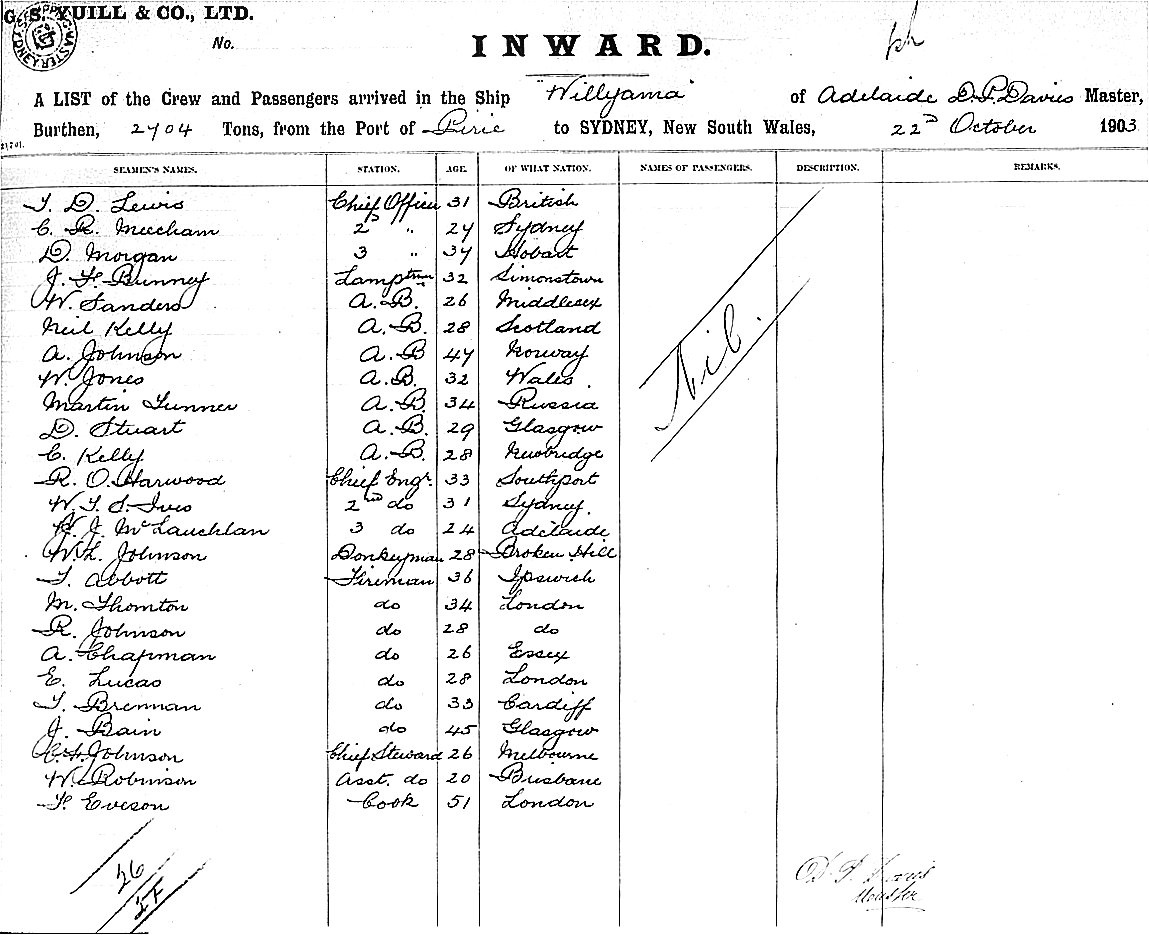 G. S. YUILL & CO., LTD.
No.
INWARD.
A LIST of the Crew and Passengers arrived in the Ship "Willyama" of Adelaide D. P. Davies Master,
Burthen, 2704 Tons, from the Port of Pirie to SYDNEY, New South Wales, 22D October 1903
SEAMEN'S NAMES. STATION. AGE. OF WHAT NATION. NAMES OF PASSENGERS. DESCRIPTION. REMARKS.
T. D. Lewis Chief Officer 31 British
C. R. Meecham 2D " 24 Sydney
D. Morgan 3 " 34 Hobart
J. F. Bunney Lamptrm 32 Simonstown
W. Sanders A.B. 26 Middlesex
Neil Kelly A.B. 28 Scotland
A. Johnson A.B 47 Norway
W. Jones A.B. 32 Wales.
Martin Tunner A.B. 34 Russia
D. Stuart A.B. 29 Glasgow
C. Kelly A.B. 28 Newbridge
R. O. Harwood Chief Engr. 33 Southport
W. T. S. Ives 2nd do 31 Sydney.
J. McLauchlan 3 do 24 Adelaide
W. L. Johnson Donkeyman 28 Broken Hill
T. Abbott Fireman 36 Ipswich
M. Thomton do 34 London
R. Johnson do 28 do
A. Chapman do 26 Essex
E. Lucas do 28 London
T. Brennan do 33 Cardiff
J. Bain do 45 Glasgow
Johnson Chief Steward 26 Melbourne
W. Robinson Asst. do 20 Brisbane
F. Eveson Cook 51 London
Nil.
26
D. P. Davies
Master